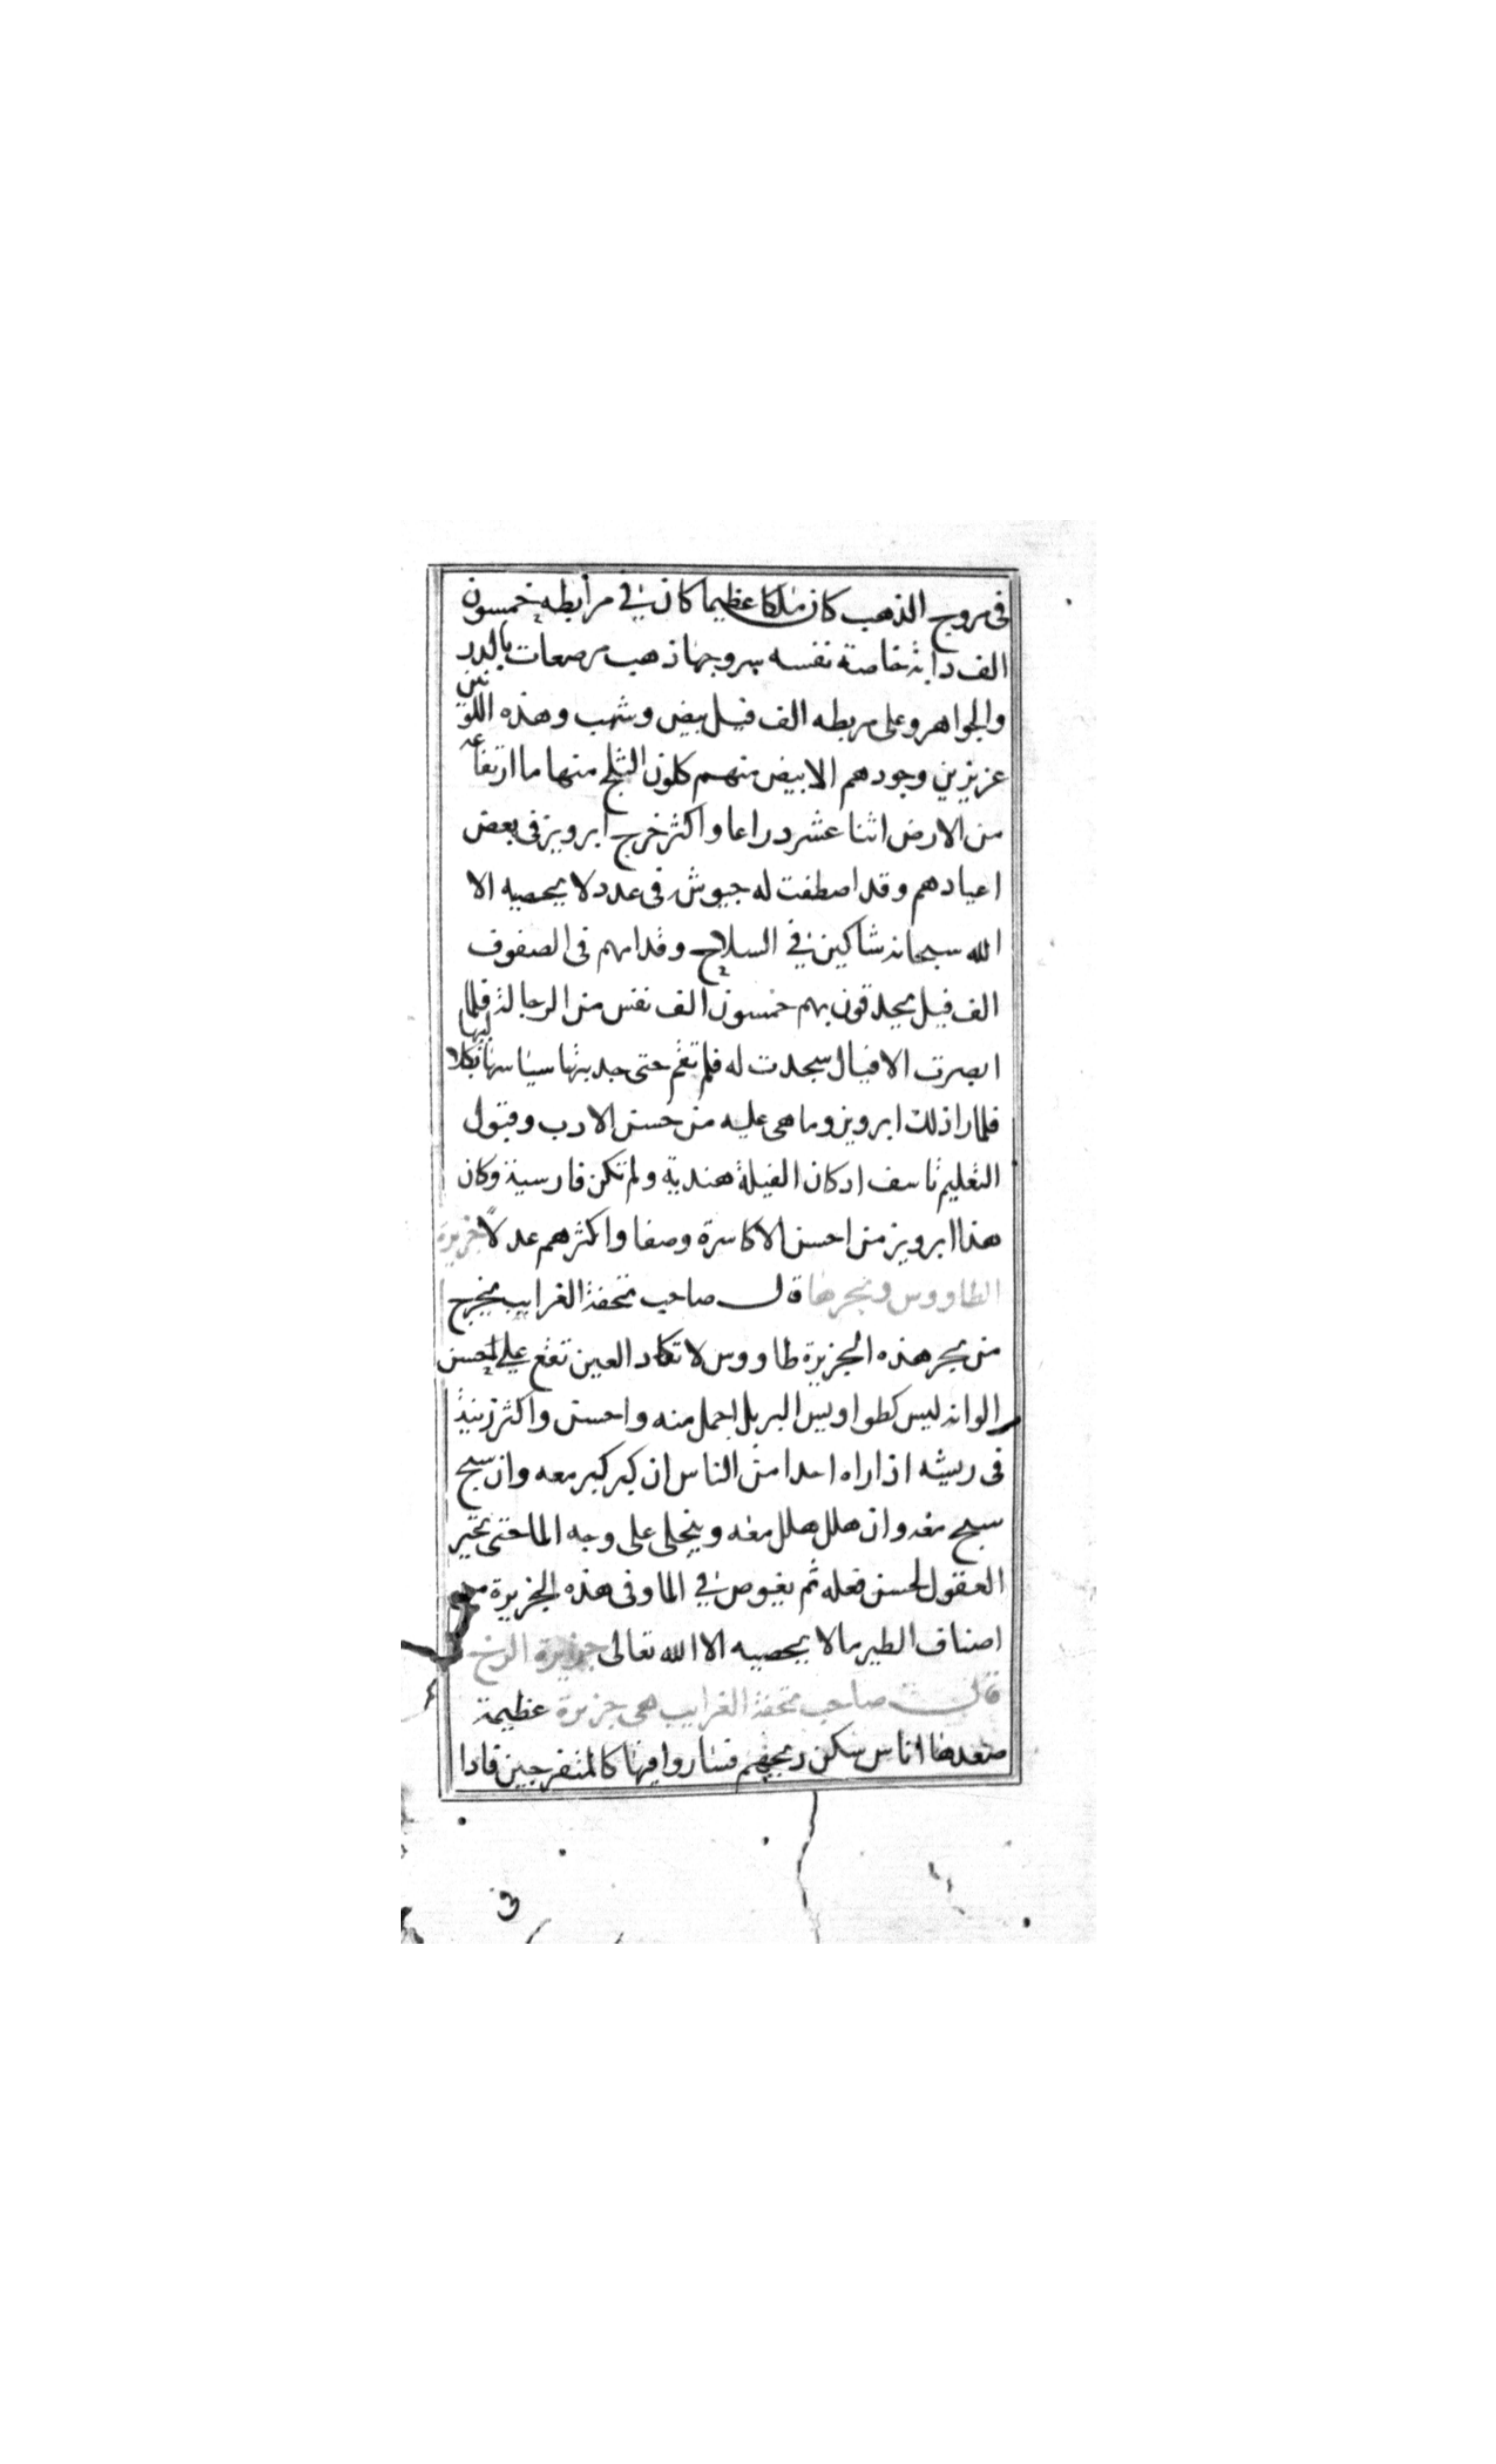 فى مروج الذهب كان ملكا عظيما كان في مرابطه خمسون
الف دابة خاصة نفسه سروجها ذهب مرصعات بالدرر
والجواهر وعلى مربطه الف فيل بيض وشهب وهذه اللونين
عزيزين وجودهم الابيض منهم كلون الثلج منها ما ارتفاعه
من الارض اثنا عشر دراعا واكثر خرج ابرويز فى بعض
اعيادهم وقد اصطفت له جيوش فى عدد لا يحصيه الا
الله سبحانه شاكين في السلاح وقدامهم فى الصفوف
الف فيل يحدقون بهم خمسون الف نفس من الرجالة فلما
ابصرت الافيال سجدت له فلم تقم حتى جدبتها سياسها بكلاليبها
فلما را ذلك ابرويز وما هى عليه من حسن الادب وقبول
التعليم تاسف اد كان الفيلة هندية ولم تكن فارسية وكان
هذا ابرويز من احسن الاكاسرة وصفا واكثرهم عدلا جزيرة
الطاووس وبحرها قال صاحب تحفة الغرايب يخرج
من بحر هذه الجزيرة طاووس لا تكاد العين تقع على احسن
الوانه ليس كطواويس البر بل اجمل منه واحسن واكثر زينة
فى ريشه اذا راه احدا من الناس ان كبر كبر معه وان سبح
سبح معه وان هلل هلل معه ويتجلى على وجه الما حتى تحير
العقول لحسن فعله ثم يغوص في الما وفى هذه الجزيرة من
اصناف الطير ما لا يحصيه الا الله تعالى جزيرة الرخ
قال صاحب تحفة الغرايب هى جزيرة عظيمة
صعدها اناس سكن ريحهم فساروا فيها كالمتفرجين فادا